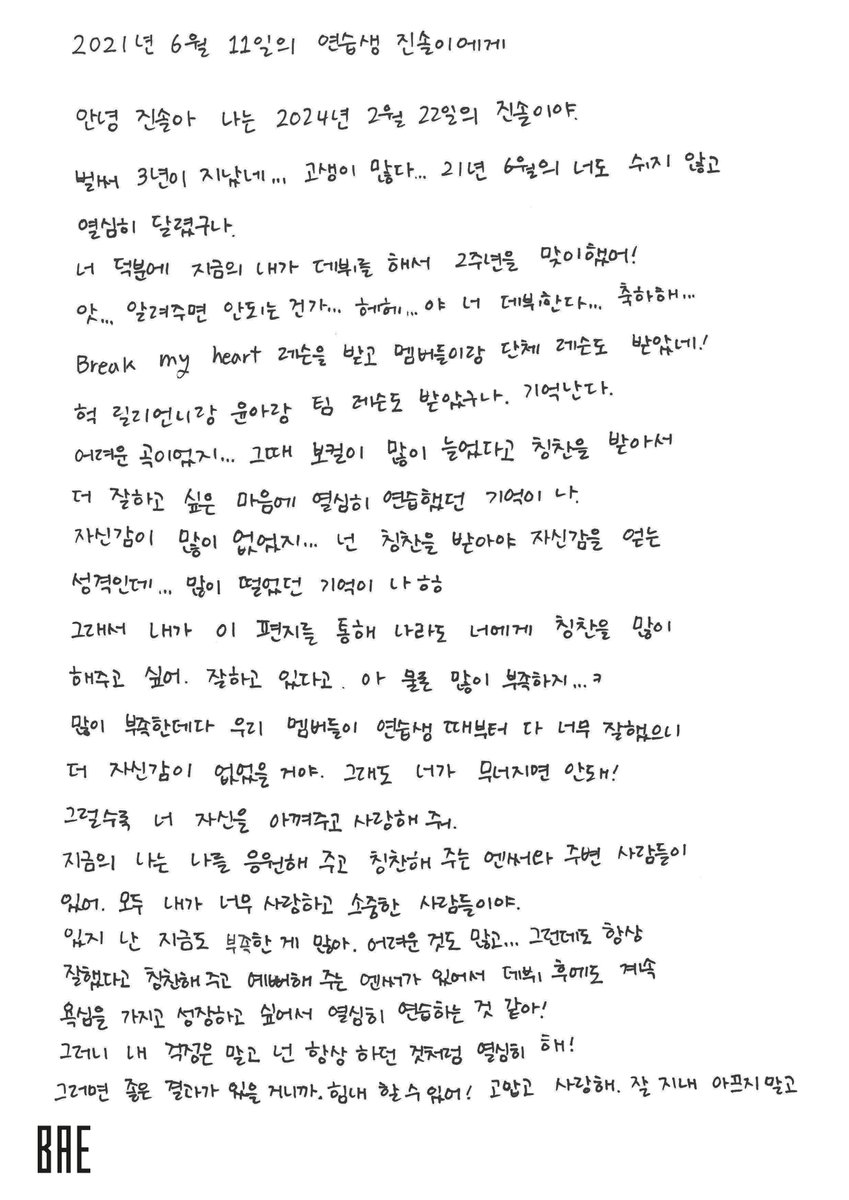 2021년 6월 11일의 연습생 진솔이에게
안녕 진솔아 나는 2024년 2월 22일의 진솔이야.
벌써 3년이 지났네... 고생이 많다... 21년 6월의 너도 쉬지 않고
열심히 달렸구나.
너 덕분에 지금의 내가 데뷔를 해서 2주년을 맞이했어!
앗... 알려주면 안되는 건가... 헤헤... 야 너 데뷔한다... 축하해...
Break my heart 레슨을 받고 멤버들이랑 단체 레슨도 받았네!
헉 릴리언니랑 윤아랑 팀 레슨도 받았구나. 기억난다.
어려운 곡이었지... 그때 보컬이 많이 늘었다고 칭찬을 받아서
더 잘하고 싶은 마음에 열심히 연습했던 기억이 나.
자신감이 많이 없었지... 넌 칭찬을 받아야 자신감을 얻는
성격인데... 많이 떨었던 기억이 나 ㅎㅎ
그래서 내가 이 편지를 통해 나라도 너에게 칭찬을 많이
해주고 싶어. 잘하고 있다고. 아 물론 많이 부족하지...ㅋ
많이 부족한데다 우리 멤버들이 연습생 때부터 다 너무 잘했으니
더 자신감이 없었을 거야. 그래도 너가 무너지면 안돼!
그럴수록 너 자신을 아껴주고 사랑해 줘.
지금의 나는 나를 응원해 주고 칭찬해 주는 엔써와 주변 사람들이
있어. 모두 내가 너무 사랑하고 소중한 사람들이야.
있지 난 지금도 부족한 게 많아. 어려운 것도 많고... 그런데도 항상
잘했다고 칭찬해 주고 예뻐해 주는 엔써가 있어서 데뷔 후에도 계속
욕심을 가지고 성장하고 싶어서 열심히 연습하는 것 같아!
그러니 내 걱정은 말고 넌 항상 하던 것처럼 열심히 해!
그러면 좋은 결과가 있을 거니까. 힘내 할 수 있어! 고맙고 사랑해. 잘 지내 아프지 말고
BAE